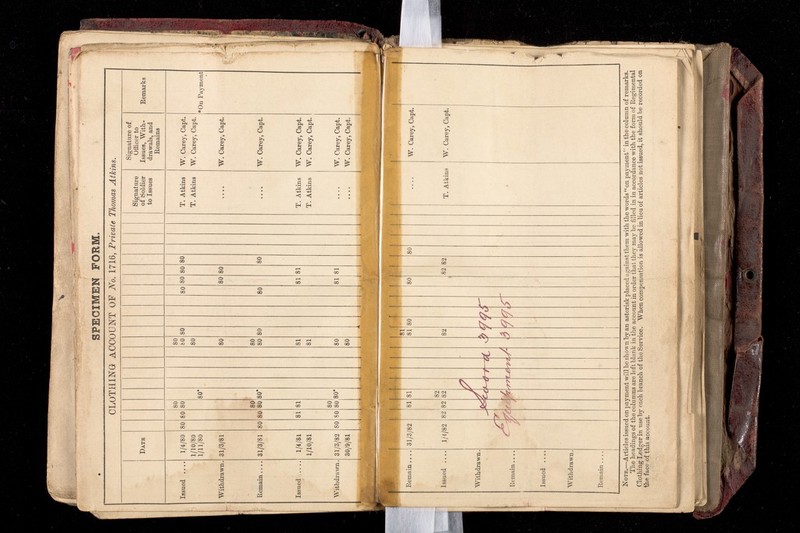 SPECIMEN FORM.
CLOTHING ACCOUNT OF No. 1716, Private Thomas Atkins.
DATE
Signature of Soldier to Issues
Signature of Officer to Issues, With-drawals, and Remains
Remarks
80 80
Issued .... 1/4/80 80 80 80 80 80 80 80 80 80 T. Atkins W. Carey, Capt.
1/10/80 80 T. Atkins W. Carey, Capt.
1/11/80 80* *On Payment
Withdrawn. 31/3/81 80 80 80 .... W. Carey, Capt.
80 80
Remain .... 31/3/81 80 80 80 80* 80 80 80 80 .... W. Carey, Capt.
Issued .... 1/4/81 81 81 81 81 81 T. Atkins W. Carey, Capt.
1/10/81 81 T. Atkins W. Carey, Capt.
80
Withdrawn. 31/3/82 80 80 80 80* 80 81 81 .... W. Carey, Capt.
30/9/81 80 .... W. Carey, Capt.
81
Remain .... 31/3/82 81 81 81 80 80 80 .... W. Carey, Capt.
82
Issued .... 1/4/82 82 82 82 82 82 82 T. Atkins W. Carey, Capt.
Withdrawn.
Sword 3995
Remain ....
Equipment 3995
Issued ....
Withdrawn.
Remain ....
NOTE.—Articles issued on payment will be shown by an asterisk placed against them with the words "on payment" in the column of remarks.
The headings of the columns are left blank in the account in order that they may be filled in in accordance with the form of Regimental
Clothing Ledger in use by each branch of the Service. When compensation is allowed in lieu of articles not issued, it should be recorded on
the face of this account.